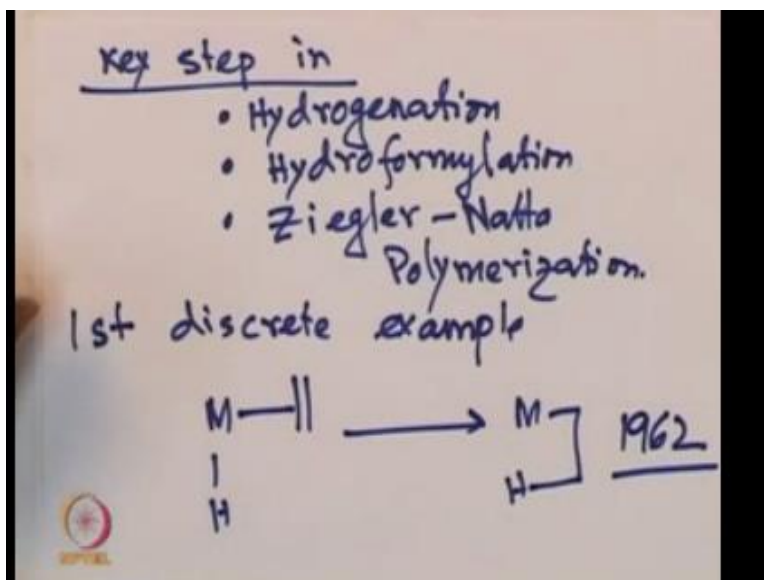 Key step in
• Hydrogenation
• Hydroformylation
• Ziegler - Natta
Polymerization.
1st discrete example
M—|| → M
H H
1962
NPTEL